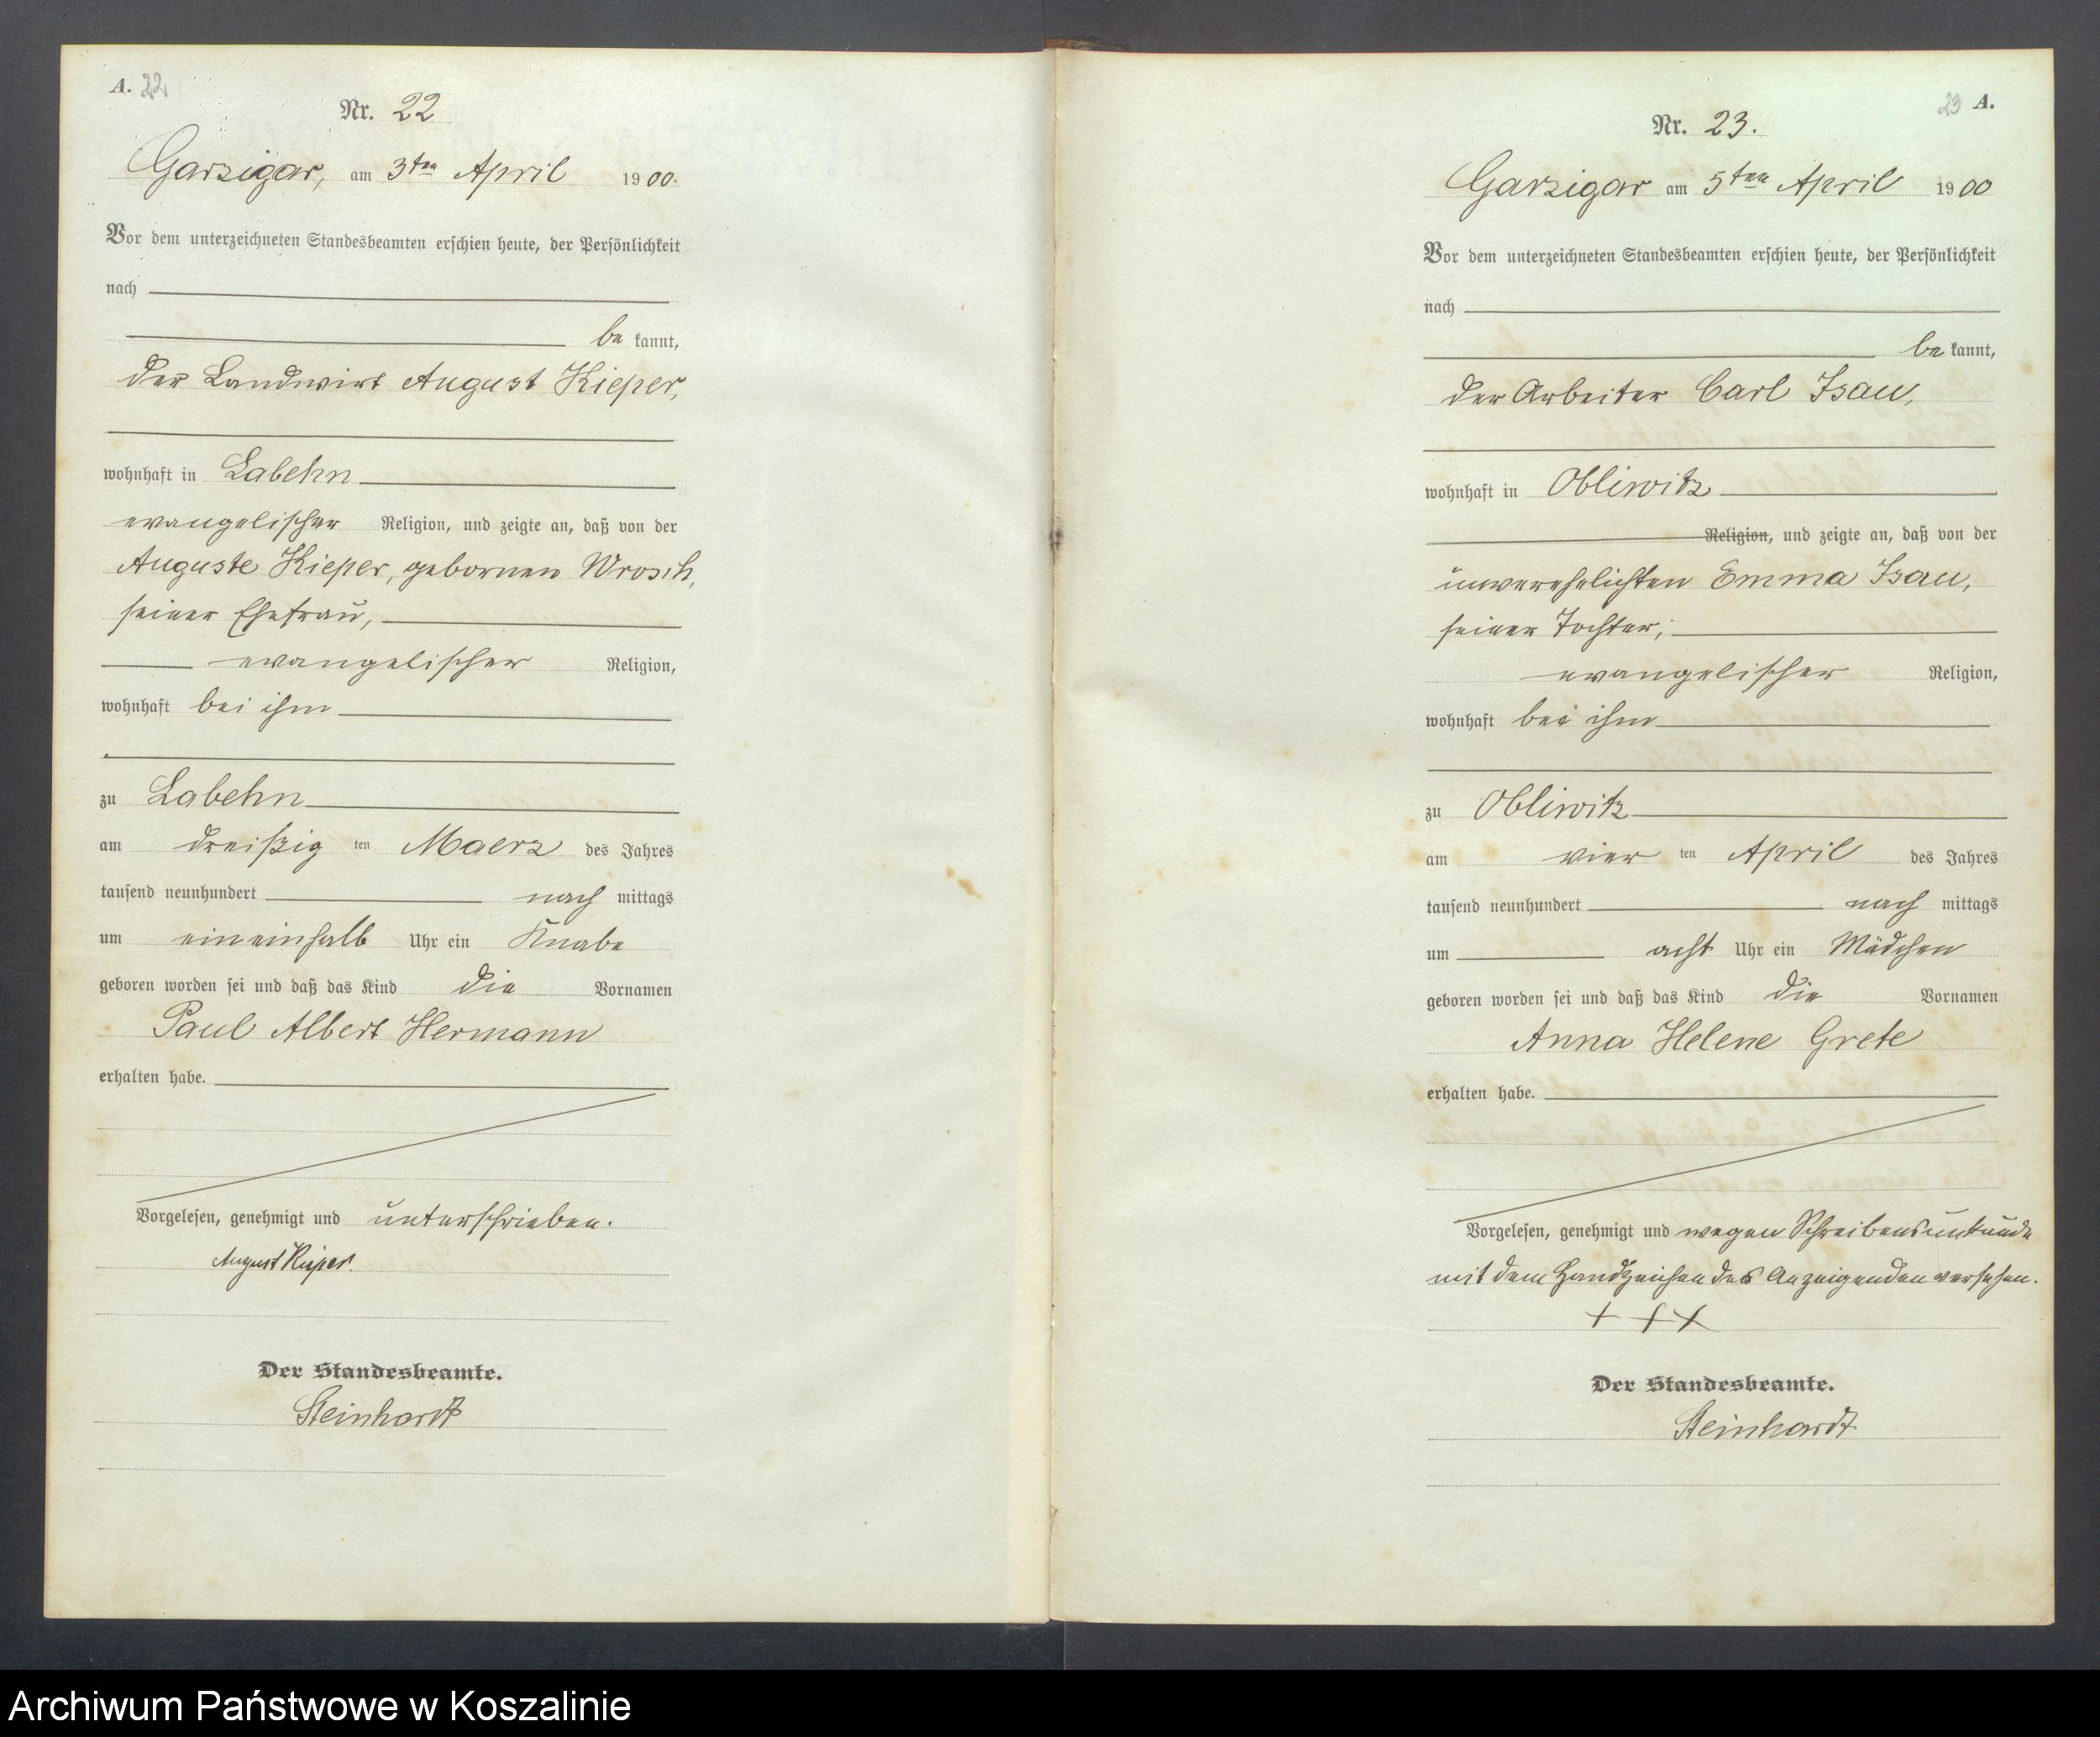 A. 22
Nr. 22
Garzigar, am 3ten April 1900.
Vor dem unterzeichneten Standesbeamten erschien heute, der Persönlichkeit
nach
be kannt,
der Landwirt August Kieper,
wohnhaft in Labehn
evangelischer Religion, und zeigte an, daß von der
Auguste Kieper, gebornen Wrosch,
seiner Ehefrau,
evangelischer Religion,
wohnhaft bei ihm
zu Labehn
am dreißig ten Maerz des Jahres
tausend neunhundert nach mittags
um eineinhalb Uhr ein Knabe
geboren worden sei und daß das Kind die Vornamen
Paul Albert Hermann
erhalten habe.
Vorgelesen, genehmigt und unterschrieben.
August Kieper.
Der Standesbeamte.
Steinhardt
23 A.
Nr. 23.
Garzigar am 5ten April 1900
Vor dem unterzeichneten Standesbeamten erschien heute, der Persönlichkeit
nach
be kannt,
der Arbeiter Carl Isau,
wohnhaft in Obliwitz
Religion, und zeigte an, daß von der
unverehelichten Emma Isau,
seiner Tochter,
evangelischer Religion,
wohnhaft bei ihm
zu Obliwitz
am vier ten April des Jahres
tausend neunhundert nach mittags
um acht Uhr ein Mädchen
geboren worden sei und daß das Kind die Vornamen
Anna Helene Grete
erhalten habe.
Vorgelesen, genehmigt und wegen Schreibensunkunde
mit dem Handzeichen des Anzeigenden versehen.
+ + +
Der Standesbeamte.
Steinhardt
Archiwum Państwowe w Koszalinie